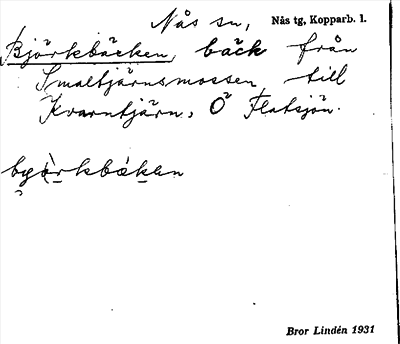 Nås sn, Nås tg, Kopparb. l.
Björkbäcken, bäck från
Smaltjärnsmossen till
Kvarntjärn, Ö Flatsjön.
byörkbäken
Bror Lindén 1931